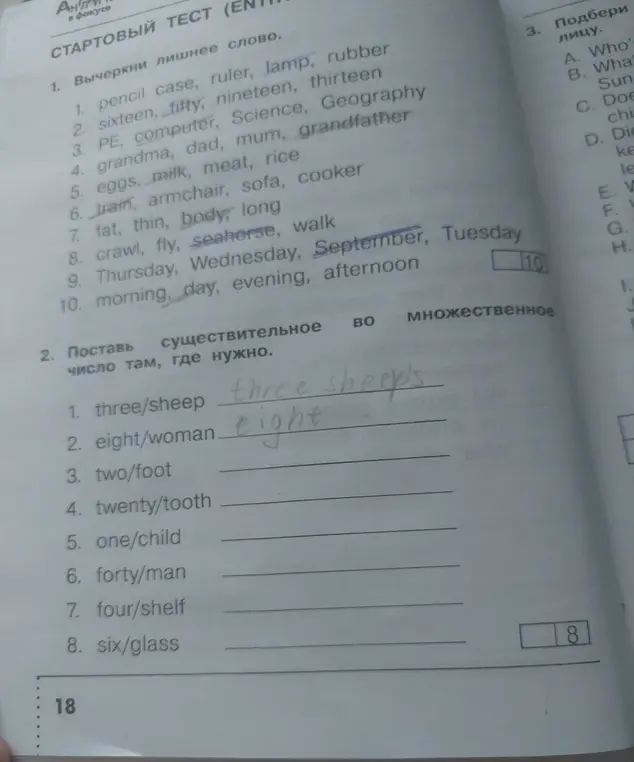 в фокусе
СТАРТОВЫЙ ТЕСТ
1. Вычеркни лишнее слово.
1. pencil case, ruler, lamp, rubber
2. sixteen, fifty, nineteen, thirteen
3. PE, computer, Science, Geography
4. grandma, dad, mum, grandfather
5. eggs, milk, meat, rice
6. train, armchair, sofa, cooker
7. fat, thin, body, long
8. crawl, fly, seahorse, walk
9. Thursday, Wednesday, September, Tuesday
10. morning, day, evening, afternoon
10
2. Поставь существительное во множественное
число там, где нужно.
1. three/sheep three sheeps
2. eight/woman eight
3. two/foot
4. twenty/tooth
5. one/child
6. forty/man
7. four/shelf
8. six/glass
8
18
3. Подбери
лицу.
A. Who'
B. Wha
Sun
C. Doe
chi
D. Di
ke
le
E.
F.
G.
H.
I.